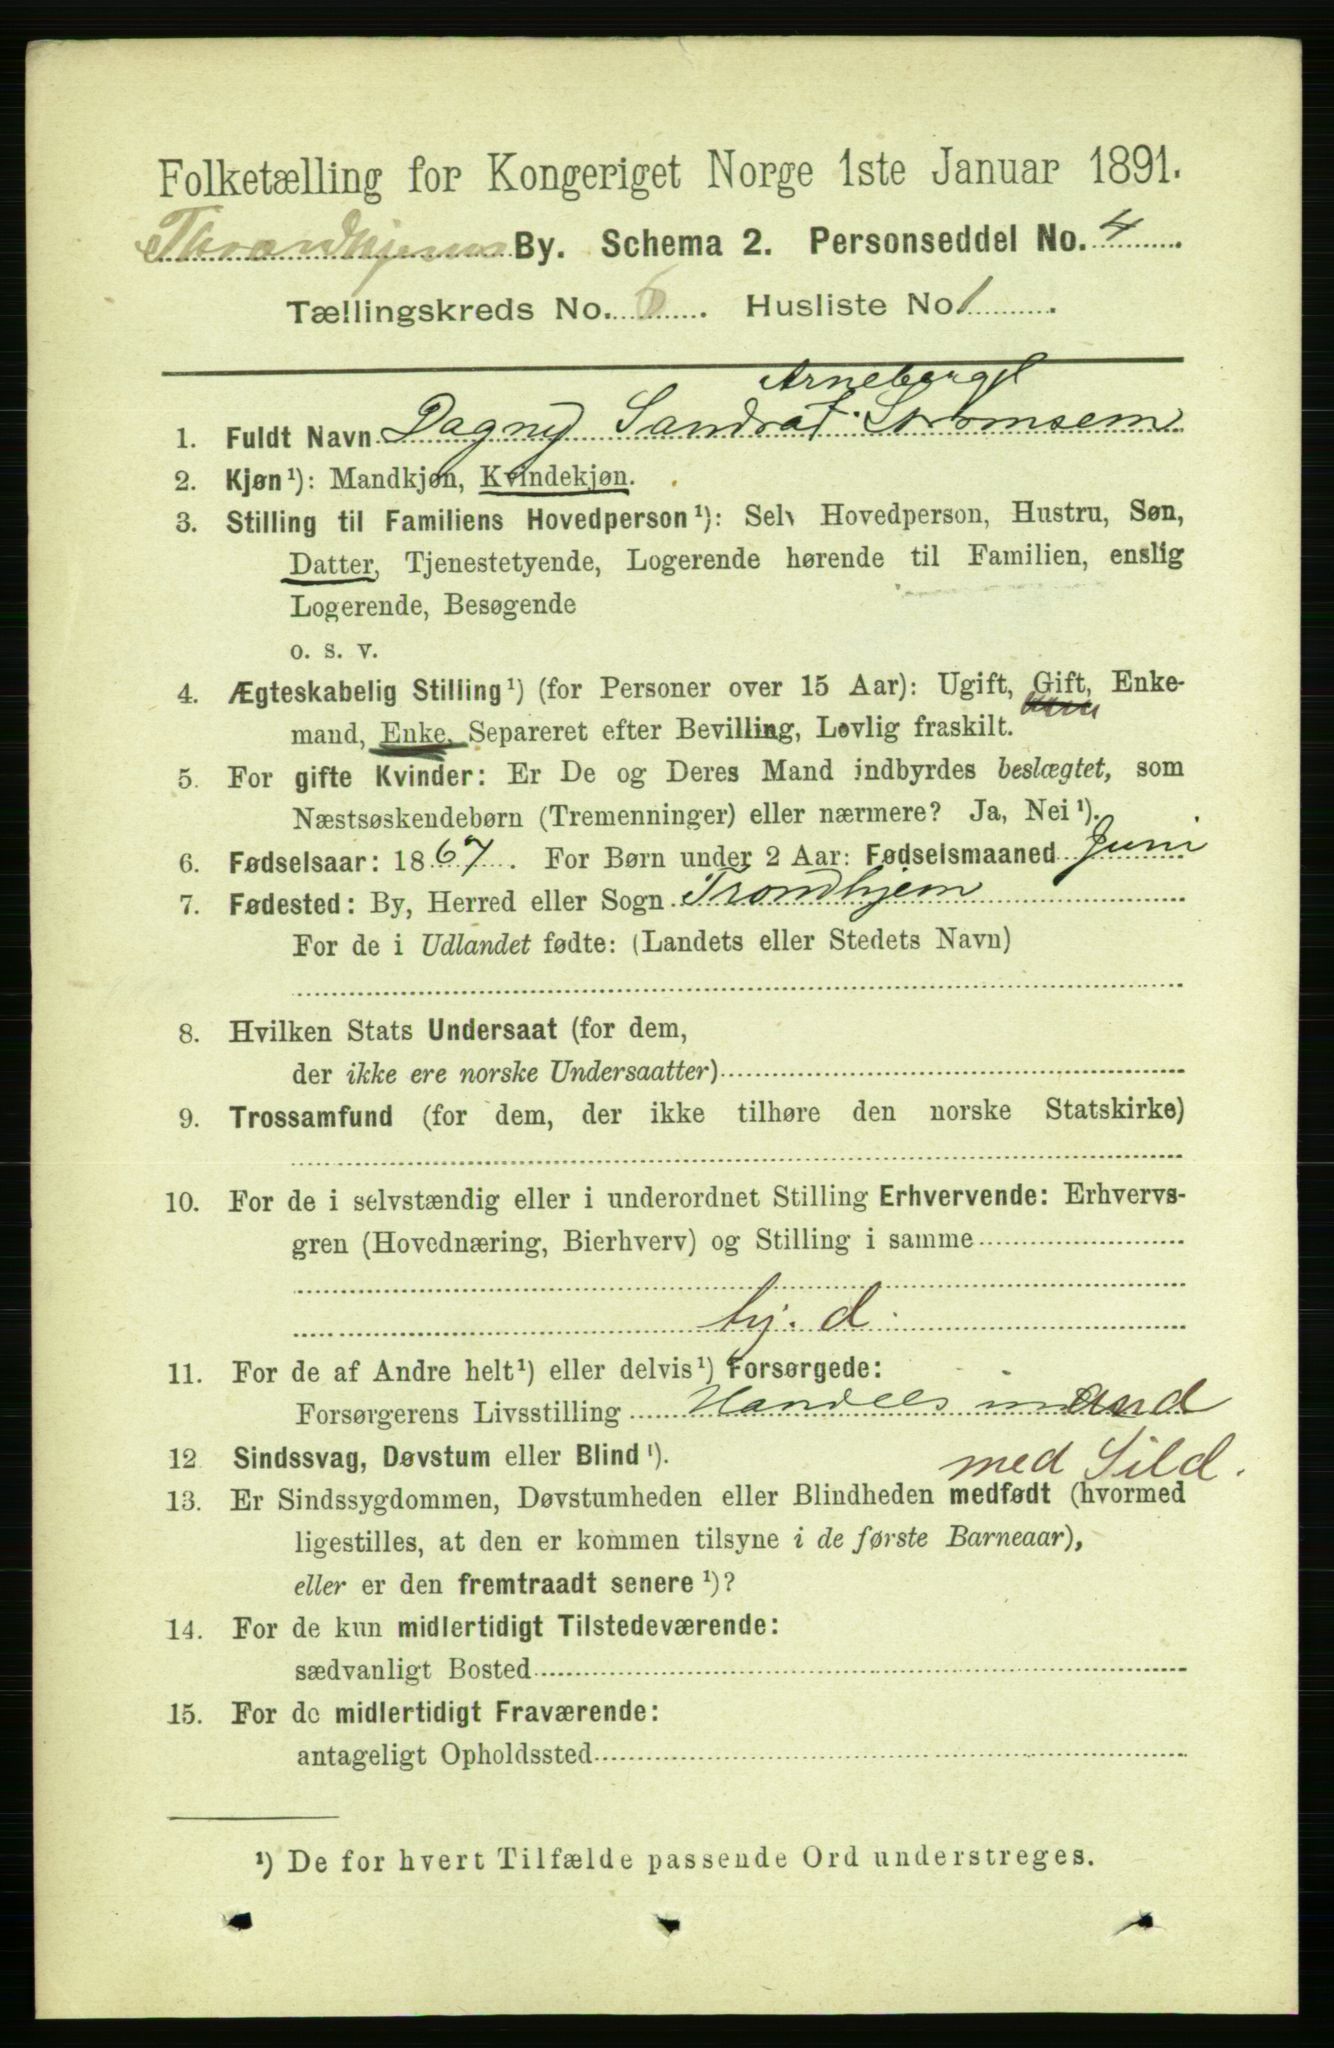 Folketælling for Kongeriget Norge 1ste Januar 1891.
Throndhjems By. Schema 2. Personseddel No. 4
Tællingskreds No. 6. Husliste No 1.
Arneberg
1. Fuldt Navn Dagny Sandrat Strømsem
2. Kjøn ¹): Mandkjøn, Kvindekjøn.
3. Stilling til Familiens Hovedperson ¹): Selv Hovedperson, Hustru, Søn,
Datter, Tjenestetyende, Logerende hørende til Familien, enslig
Logerende, Besøgende
o. s. v.
4. Ægteskabelig Stilling ¹) (for Personer over 15 Aar): Ugift, Gift, Enke-
mand, Enke, Separeret efter Bevilling, Lovlig fraskilt.
5. For gifte Kvinder: Er De og Deres Mand indbyrdes beslægtet, som
Næstsøskendebørn (Tremenninger) eller nærmere? Ja, Nei ¹).
6. Fødselsaar: 1867. For Børn under 2 Aar: Fødselsmaaned Juni
7. Fødested: By, Herred eller Sogn Trondhjem
For de i Udlandet fødte: (Landets eller Stedets Navn)
8. Hvilken Stats Undersaat (for dem,
der ikke ere norske Undersaatter)
9. Trossamfund (for dem, der ikke tilhøre den norske Statskirke)
10. For de i selvstændig eller i underordnet Stilling Erhvervende: Erhvervs-
gren (Hovednæring, Bierhverv) og Stilling i samme
hj. d.
11. For de af Andre helt ¹) eller delvis ¹) Forsørgede:
Forsørgerens Livsstilling Handelsmand
12 Sindssvag, Døvstum eller Blind ¹).
med Sild.
13. Er Sindssygdommen, Døvstumheden eller Blindheden medfødt (hvormed
ligestilles, at den er kommen tilsyne i de første Barneaar),
eller er den fremtraadt senere ¹)?
14. For de kun midlertidigt Tilstedeværende:
sædvanligt Bosted
15. For de midlertidigt Fraværende:
antageligt Opholdssted
¹) De for hvert Tilfælde passende Ord understreges.